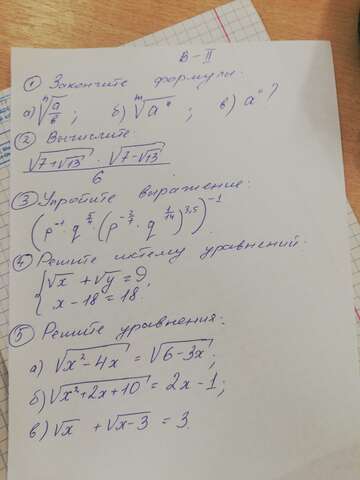 В-II
① Закончите формулы:
а) ⁿ√(a/b); б) ᵐ√aⁿ; в) a⁰?
② Вычислите:
(√(7+√13) · √(7-√13))/6
③ Упростите выражение:
(p⁻¹ q^(5/4) · (p^(-2/7) · q^(1/14))^(3,5))⁻¹.
④ Решите систему уравнений.
{√x + √y = 9,
x - 18 = 18.
⑤ Решите уравнения:
а) √(x²-4x) = √(6-3x);
б) √(x²+2x+10) = 2x-1;
в) √x + √(x-3) = 3.